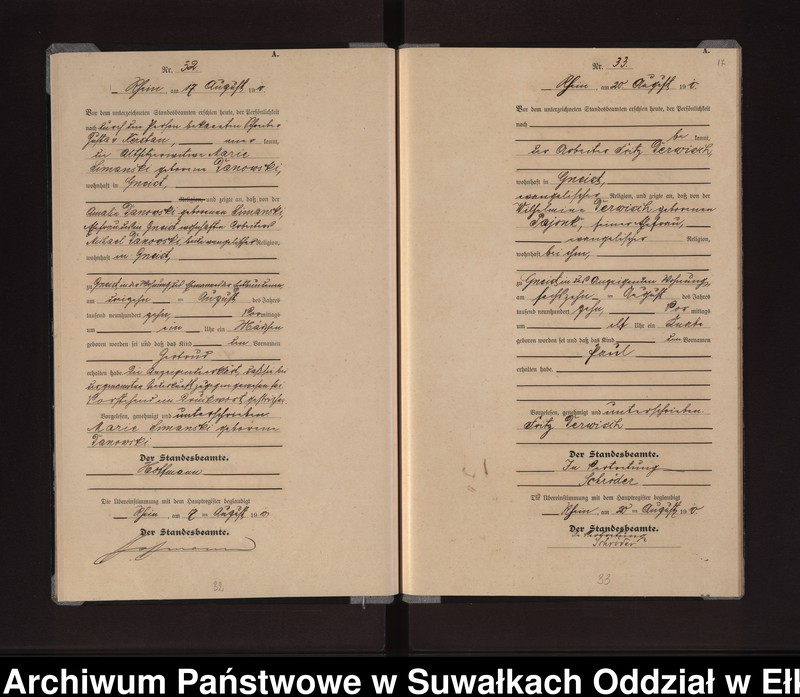 A.
Nr. 32.
Rhein, am 17 August 1910.
Vor dem unterzeichneten Standesbeamten erschien heute, der Persönlichkeit
nach durch den Person bekannten Schreiber
Gustav Kerstan, kannt,
die Altsitzerwitwe Marie
Simanski geborene Danowski,
wohnhaft in Gneist,
Religion, und zeigte an, daß von der
Amalie Danowski geborenen Simanski,
Ehefrau des in Gneist wohnhaften Arbeiters
Michael Danowski, beide evangelischer Religion,
wohnhaft in Gneist,
zu Gneist in der Wohnung
am dreizehn ten August des Jahres
tausend neunhundert zehn, Vormittags
um ein Uhr ein Mädchen
geboren worden sei und daß das Kind den Vornamen
Gertrud
erhalten habe. Die Anzeigende erklärt, daß sie bei
der genannten Niederkunft zugegen gewesen sei.
Vorstehend ein Druckwort gestrichen.
Vorgelesen, genehmigt und unterschrieben
Marie Simanski geborene
Danowski
Der Standesbeamte.
Hoffmann
Die Übereinstimmung mit dem Hauptregister beglaubigt
Rhein, am 17 ten August 1910.
Der Standesbeamte.
Hoffmann
32
A.
17.
Nr. 33.
Rhein, am 20 August 1910.
Vor dem unterzeichneten Standesbeamten erschien heute, der Persönlichkeit
nach
be kannt,
der Arbeiter Fritz Derwisch,
wohnhaft in Gneist,
evangelischer Religion, und zeigte an, daß von der
Wilhelmine Derwisch geborenen
Pajonk, seiner Ehefrau,
evangelischer Religion,
wohnhaft bei ihm,
zu Gneist in des Anzeigenden Wohnung
am sechzehn ten August des Jahres
tausend neunhundert zehn, Vor mittags
um elf Uhr ein Knabe
geboren worden sei und daß das Kind den Vornamen
Paul
erhalten habe.
Vorgelesen, genehmigt und unterschrieben
Fritz Derwisch
Der Standesbeamte.
In Vertretung
Schröder
Die Übereinstimmung mit dem Hauptregister beglaubigt
Rhein, am 20 ten August 1910.
Der Standesbeamte.
In Vertretung
Schröder
33
Archiwum Państwowe w Suwałkach Oddział w Eł